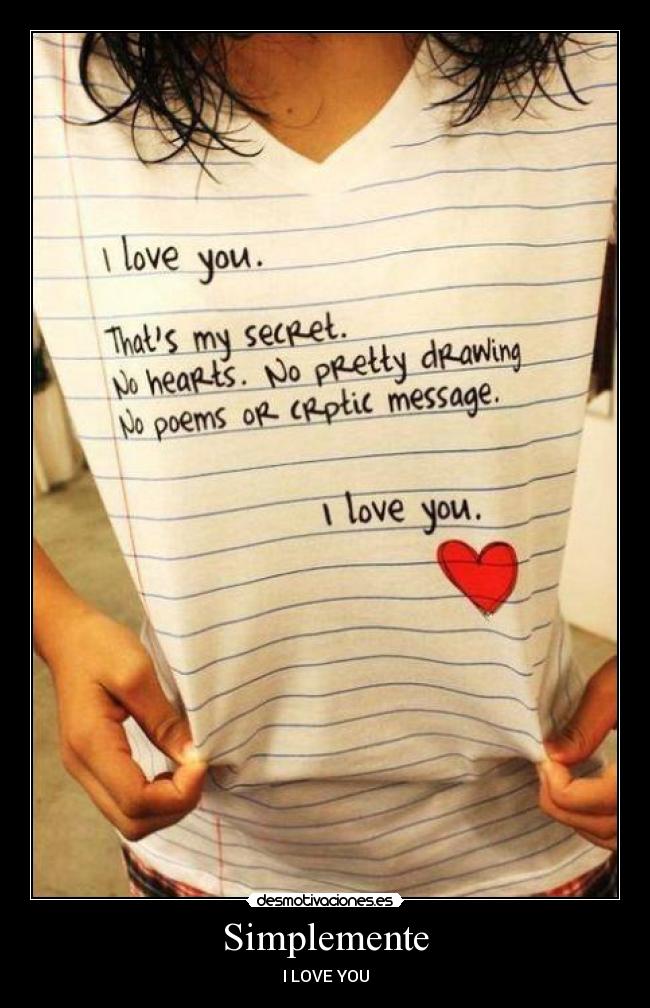 I love you.
That's my secret.
No hearts. No pretty drawing
No poems or crptic message.
I love you.
desmotivaciones.es
Simplemente
I LOVE YOU